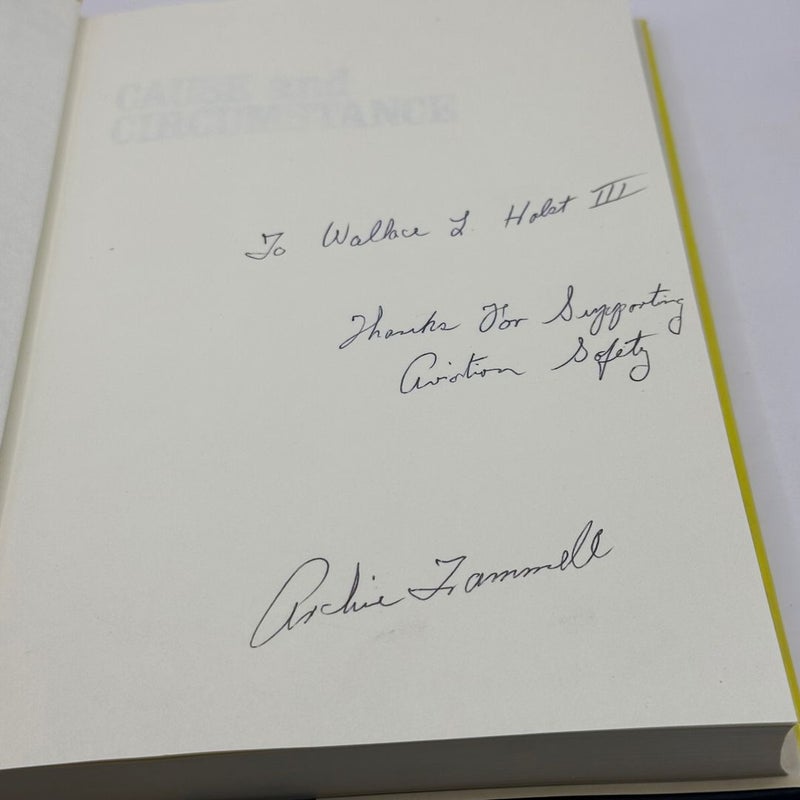 CAUSE and
CIRCUMSTANCE
To Wallace L. Holst III
Thanks For Supporting
Aviation Safety
Archie Trammell